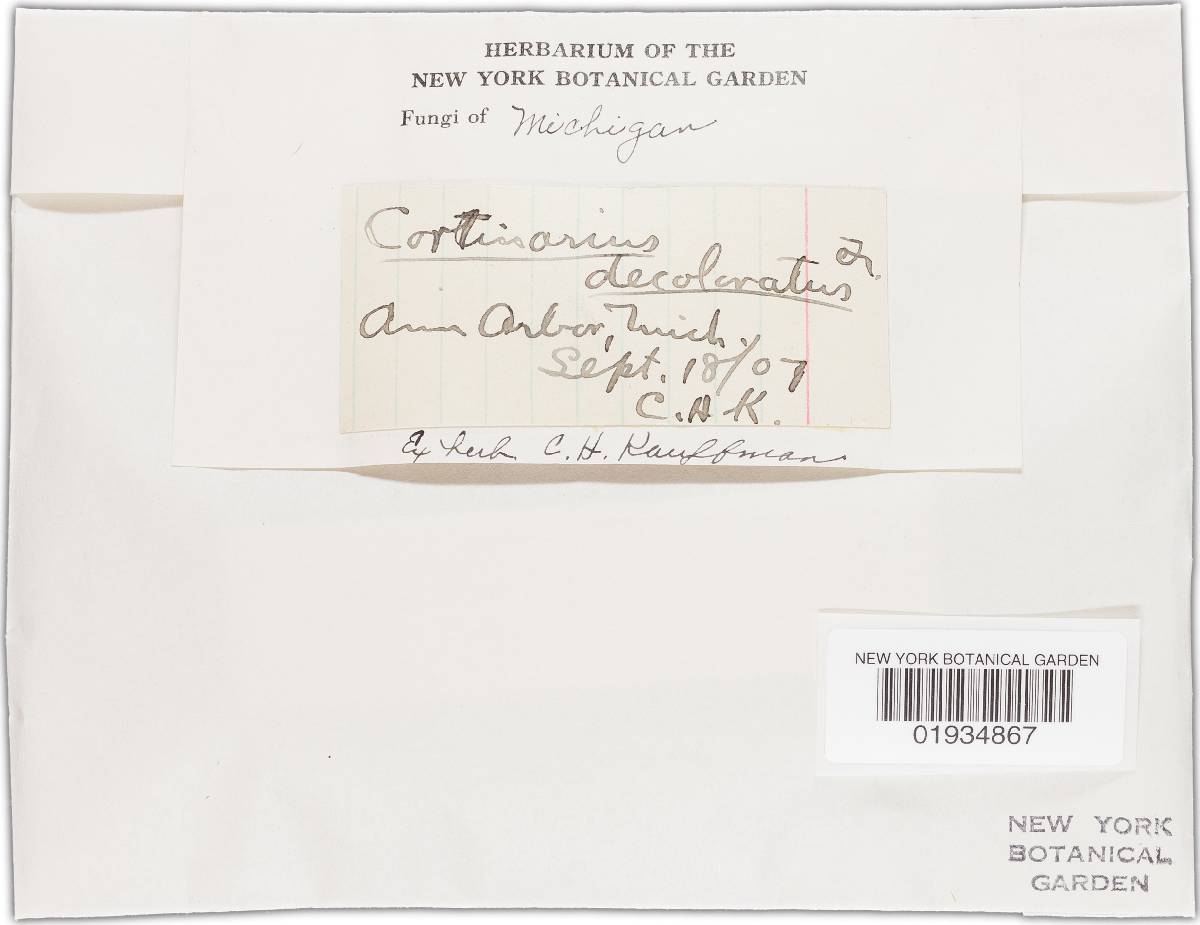 HERBARIUM OF THE
NEW YORK BOTANICAL GARDEN
Fungi of Michigan
Cortinarius
decoloratus Fr.
Ann Arbor, Mich.
Sept. 18/07
C.H.K.
Ex herb. C.H. Kauffman
NEW YORK BOTANICAL GARDEN
01934867
NEW YORK
BOTANICAL
GARDEN